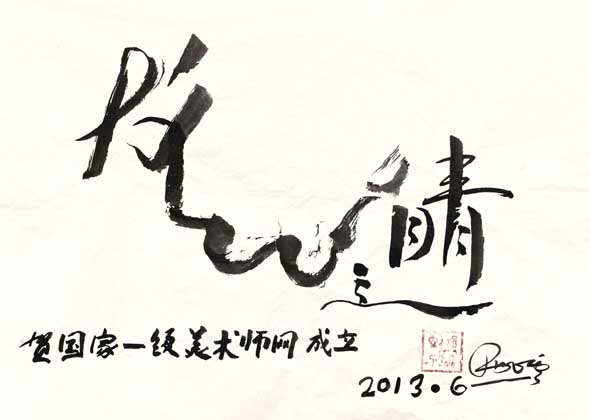 龙之睛
贺国家一级美术师网成立
2013.6